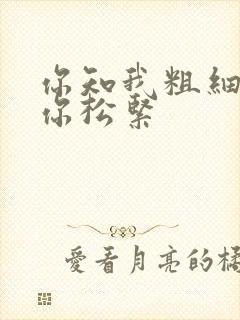 你知我粗細
你松緊
愛看月亮的橘